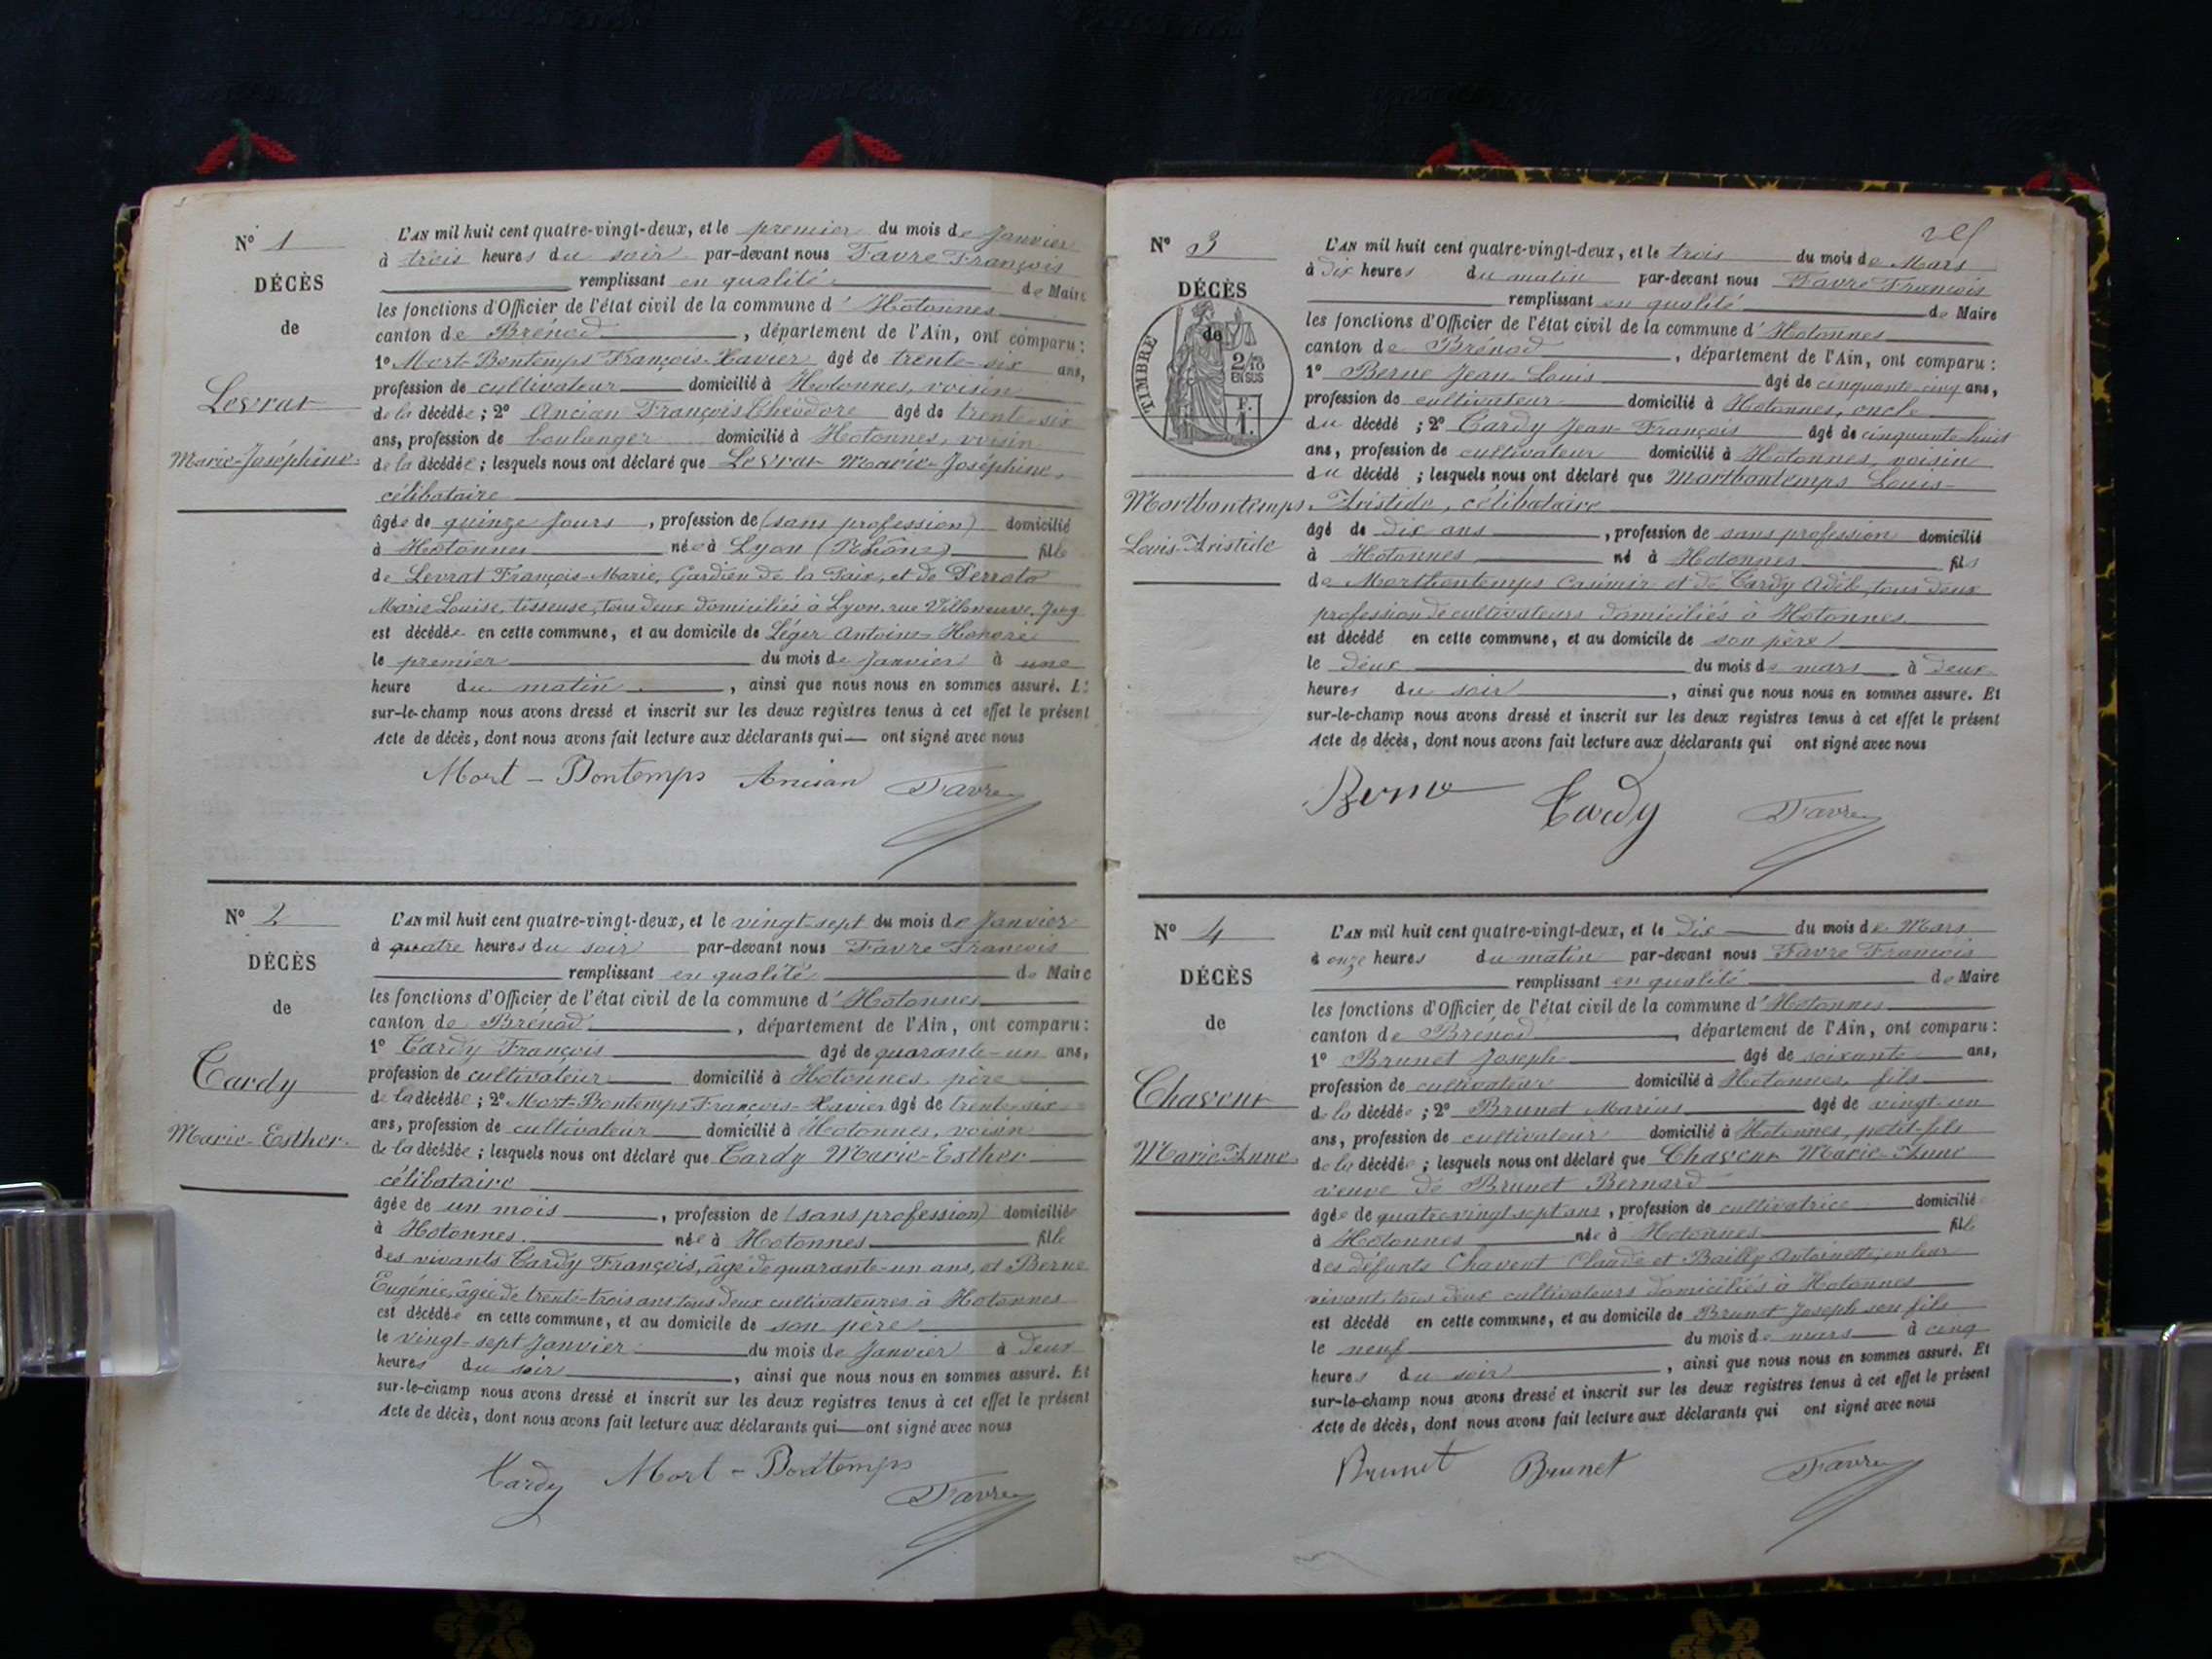 N° 1
DÉCÈS
de
Levrat
Marie-Joséphine
L'AN mil huit cent quatre-vingt-deux, et le premier du mois de Janvier
à trois heures du soir par-devant nous Favre François
remplissant en qualité de Maire
les fonctions d'Officier de l'état civil de la commune d'Hotonnes
canton de Brénod, département de l'Ain, ont comparu :
1° Mort-Bontemps François-Xavier âgé de trente-six ans,
profession de cultivateur domicilié à Hotonnes, voisin
de la décédée ; 2° Ancian François Théodore âgé de trente-six
ans, profession de boulanger domicilié à Hotonnes, voisin
de la décédée ; lesquels nous ont déclaré que Levrat Marie-Joséphine,
célibataire
âgée de quinze jours, profession de (sans profession) domicilié
à Hotonnes née à Lyon (Rhône) fille
de Levrat François-Marie, Gardien de la Paix, et de
Marie Louise, tisseuse, tous deux domiciliés à Lyon, rue Villeneuve,
est décédée en cette commune, et au domicile de Léger Antoine Honoré
le premier du mois de Janvier à une
heure du matin, ainsi que nous nous en sommes assuré. E
sur-le-champ nous avons dressé et inscrit sur les deux registres tenus à cet effet le présent
Acte de décès, dont nous avons fait lecture aux déclarants qui ont signé avec nous
Mort-Bontemps Ancian Favre
N° 2
DÉCÈS
de
Cardy
Marie-Esther
L'AN mil huit cent quatre-vingt-deux, et le vingt-sept du mois de Janvier
à quatre heures du soir par-devant nous Favre François
remplissant en qualité de Maire
les fonctions d'Officier de l'état civil de la commune d'Hotonnes
canton de Brénod, département de l'Ain, ont comparu :
1° Cardy François âgé de quarante-un ans,
profession de cultivateur domicilié à Hotonnes, père
de la décédée ; 2° Mort-Bontemps François-Xavier âgé de trente-six
ans, profession de cultivateur domicilié à Hotonnes, voisin
de la décédée ; lesquels nous ont déclaré que Cardy Marie-Esther
célibataire
âgée de un mois, profession de (sans profession) domiciliée
à Hotonnes née à Hotonnes fille
des vivants Cardy François, âgé de quarante-un ans, et Berne
Eugénie, âgée de trente-trois ans, tous deux cultivateurs à Hotonnes
est décédée en cette commune, et au domicile de son père
le vingt-sept Janvier du mois de Janvier à deux
heures du soir, ainsi que nous nous en sommes assuré. Et
sur-le-champ nous avons dressé et inscrit sur les deux registres tenus à cet effet le présent
Acte de décès, dont nous avons fait lecture aux déclarants qui ont signé avec nous
Cardy Mort-Bontemps
Favre
N° 3
DÉCÈS
de
TIMBRE
2/10
EN SUS
Mortbontemps
Louis-Aristide
L'AN mil huit cent quatre-vingt-deux, et le trois du mois de Mars
à dix heures du matin par-devant nous Favre François
remplissant en qualité de Maire
les fonctions d'Officier de l'état civil de la commune d'Hotonnes
canton de Brénod, département de l'Ain, ont comparu :
1° Berne Jean-Louis âgé de cinquante-cinq ans,
profession de cultivateur domicilié à Hotonnes, oncle
du décédé ; 2° Cardy Jean-François âgé de cinquante-huit
ans, profession de cultivateur domicilié à Hotonnes, voisin
du décédé ; lesquels nous ont déclaré que Mortbontemps Louis-
Aristide, célibataire
âgé de dix ans, profession de sans profession domicilié
à Hotonnes né à Hotonnes fils
de Mortbontemps Casimir et de Cardy Adèle, tous deux
profession de cultivateurs domiciliés à Hotonnes
est décédé en cette commune, et au domicile de son père
le deux du mois de mars à deux
heures du soir, ainsi que nous nous en sommes assuré. Et
sur-le-champ nous avons dressé et inscrit sur les deux registres tenus à cet effet le présent
Acte de décès, dont nous avons fait lecture aux déclarants qui ont signé avec nous
Berne Cardy Favre
N° 4
DÉCÈS
de
Chavent
Marie-Anne
L'AN mil huit cent quatre-vingt-deux, et le dix du mois de Mars
à onze heures du matin par-devant nous Favre François
remplissant en qualité de Maire
les fonctions d'Officier de l'état civil de la commune d'Hotonnes
canton de Brénod, département de l'Ain, ont comparu :
1° Brunet Joseph âgé de soixante ans,
profession de cultivateur domicilié à Hotonnes, fils
de la décédée ; 2° Brunet Marius âgé de vingt-un
ans, profession de cultivateur domicilié à Hotonnes, petit-fils
de la décédée ; lesquels nous ont déclaré que Chavent Marie-Anne
veuve de Brunet Bernard
âgée de quatre vingt sept ans, profession de cultivatrice domicilié
à Hotonnes née à Hotonnes fille
des défunts Chavent Claude et Bailly Antoinette, en leur
vivant tous deux cultivateurs domiciliés à Hotonnes
est décédé en cette commune, et au domicile de Brunet Joseph son fils
le neuf du mois de mars à cinq
heures du soir, ainsi que nous nous en sommes assuré. Et
sur-le-champ nous avons dressé et inscrit sur les deux registres tenus à cet effet le présent
Acte de décès, dont nous avons fait lecture aux déclarants qui ont signé avec nous
Brunet Brunet Favre